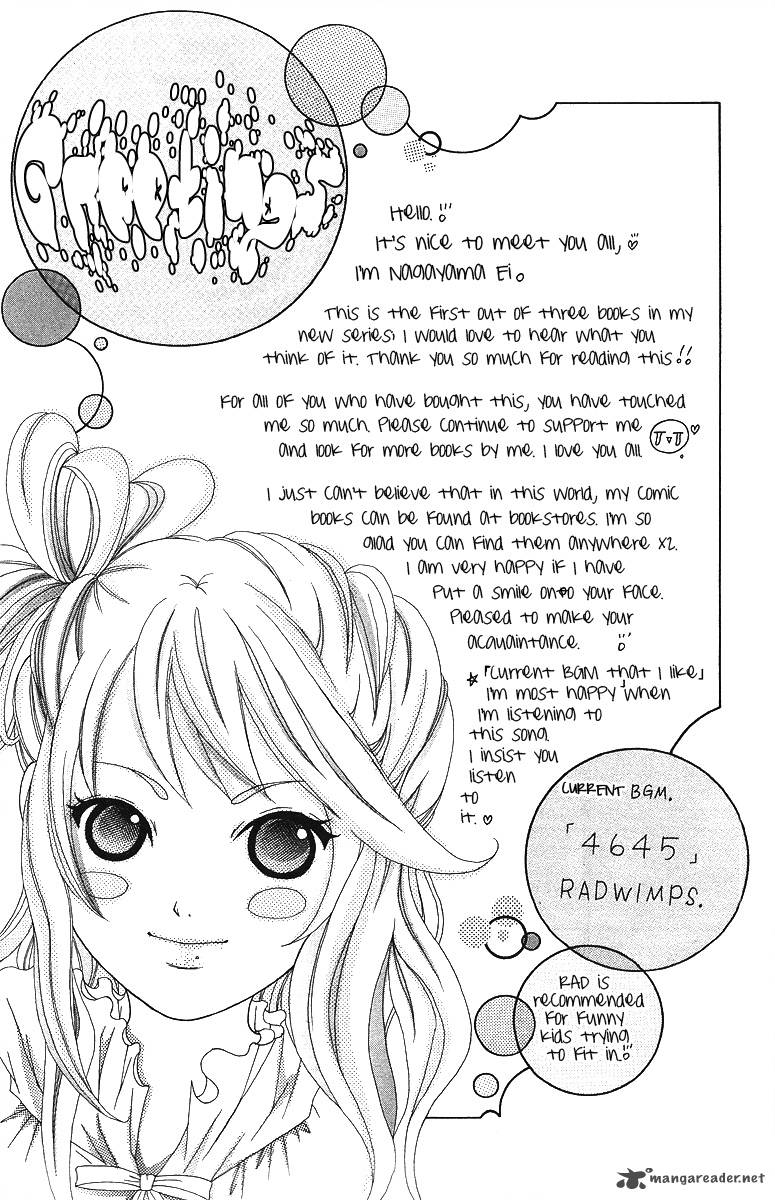 Greetings
Hello.
It's nice to meet you all,
I'm Nagayama Ei.
This is the first out of three books in my
new series; I would love to hear what you
think of it. Thank you so much for reading this!!
For all of you who have bought this, you have touched
me so much. Please continue to support me
and look for more books by me. I love you all.
I just can't believe that in this world, my comic
books can be found at bookstores. I'm so
glad you can find them anywhere x2.
I am very happy if I have
put a smile onto your face.
Pleased to make your
acquaintance.
☆「Current BGM that I like」
I'm most happy when
I'm listening to
this song.
I insist you
listen
to
it. ♡
CURRENT BGM.
「4645」
RADWIMPS.
RAD is
recommended
for funny
kids trying
to fit in.
mangareader.net